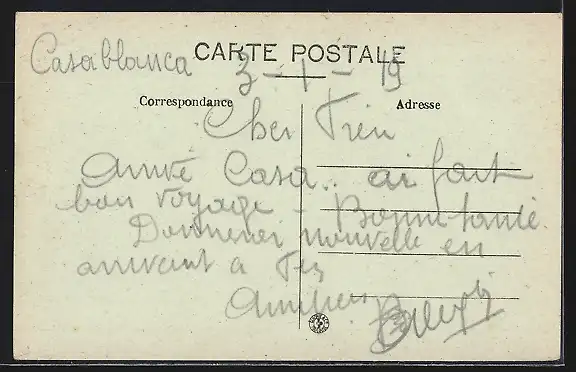 CARTE POSTALE
Casablanca 3-1-19
Correspondance
Adresse
Cher
Arrivé Casa.. ai fait
bon voyage - Bonne santé.
Donnerai nouvelle en
arrivant à Fez